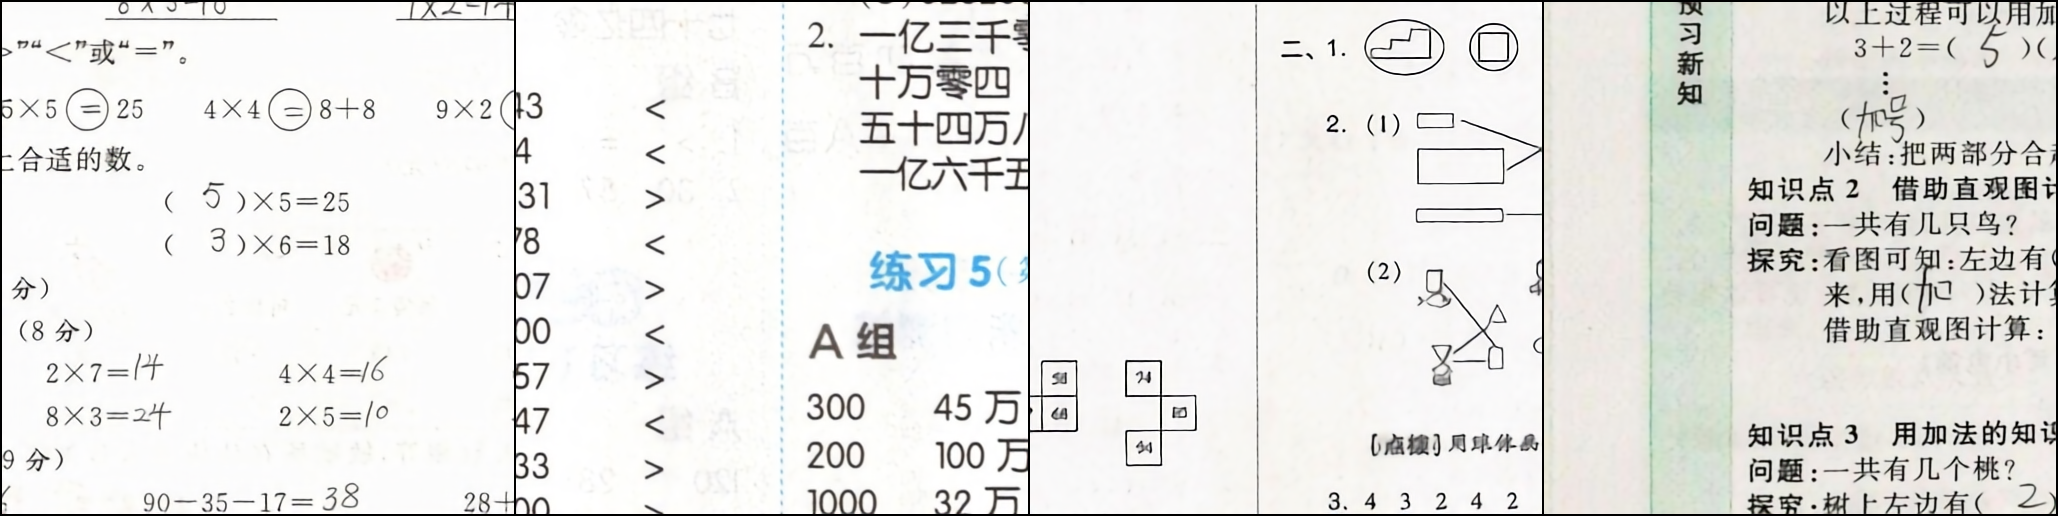 >”“<”或“=”。
5×5=25 4×4=8+8 9×2
上合适的数。
( 5 )×5=25
( 3 )×6=18
分)
(8 分)
2×7=14 4×4=16
8×3=24 2×5=10
9 分)
90-35-17=38 28+
43 <
4 <
31 >
78 <
07 >
00 <
57 >
47 <
33 >
00 >
2. 一亿三千零
十万零四
五十四万八
一亿六千五
练习 5(
A 组
300 45 万
200 100 万
1000 32 万
二、1.
2. (1)
(2)
[点拨]用球体画
3. 4 3 2 4 2
预习新知
以上过程可以用加
3+2=( 5 )(
⋮
(加号)
小结:把两部分合起
知识点 2 借助直观图计
问题:一共有几只鸟?
探究:看图可知:左边有(
来,用(加)法计算
借助直观图计算:
知识点 3 用加法的知识
问题:一共有几个桃?
探究:树上左边有( 2 )